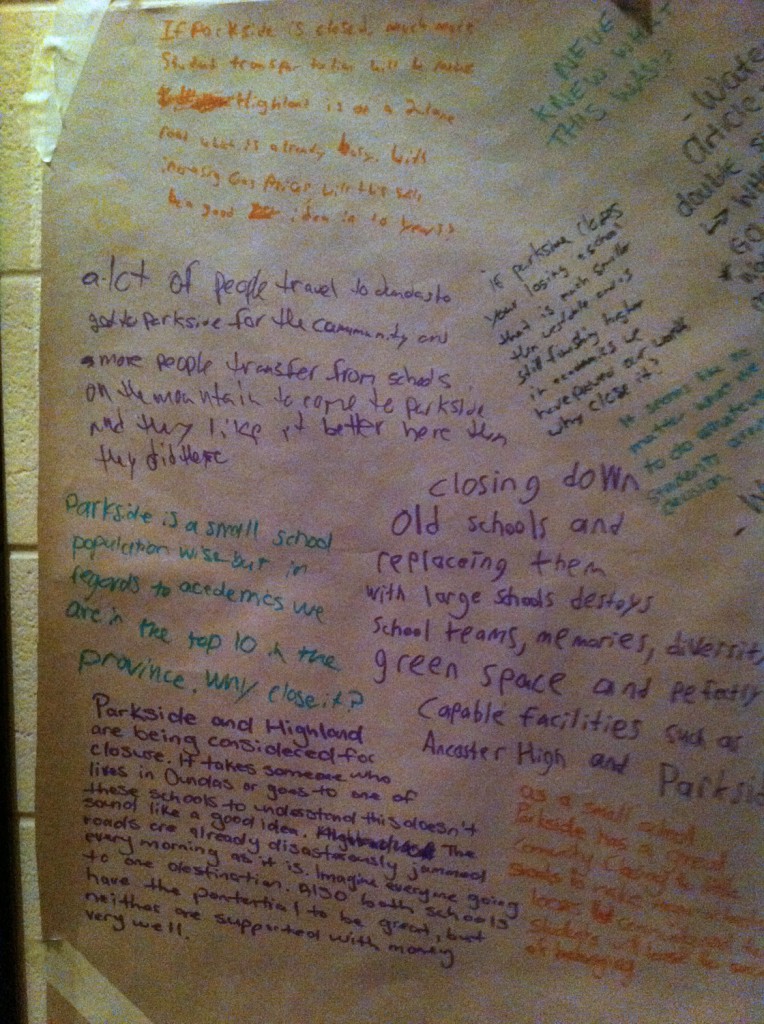 If Parkside is closed, much more
student transportation will be
Highland is on a 2 lane
road which is already busy. With
increasing Gas Prices will this still
be a good idea in 10 years?
NEVE
KNEW WHAT
THIS WAS?
- Write
article
double
a lot of people travel to dundas to
go to Parkside for the community and
more people transfer from schools
on the mountain to come to Parkside
and they like it better here then
they did there
if parkside closes
your losing a school
that is much smaller
then westdale and is
still finishing higher
in academics we
have proven our worth
why close it?
it seems like no
matter what we
to do whatever
students
decision
Parkside is a small school
population wise but in
regards to academics we
are in the top 10 in the
province. Why close it?
closing down
old schools and
replaceing them
with large schools destoys
school teams, memories, diversit
green space and
capable facilities such as
Ancaster High and Parksi
Parkside and Highland
are being considered for
closure. It takes someone who
lives in Dundas or goes to one of
these schools to understand this doesn't
sound like a good idea. The
roads are already disastrously jammed
every morning as it is. Imagine everyone going
to one destination. Also both schools
have the pontential to be great, but
neither are supported with money
very well.
as a small school
Parkside has a great
Community Closing
schools to make
students will lose
of belonging